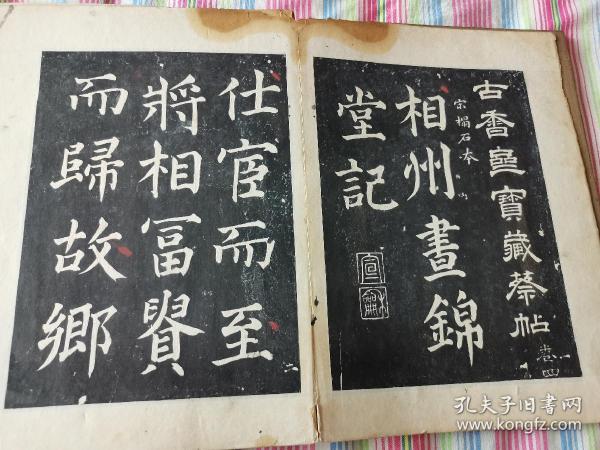 古香齋寶藏蔡帖
卷四
宋搨石本
相州晝錦
堂記
仕宦而至
將相冨貴
而歸故鄉
孔夫子旧书网